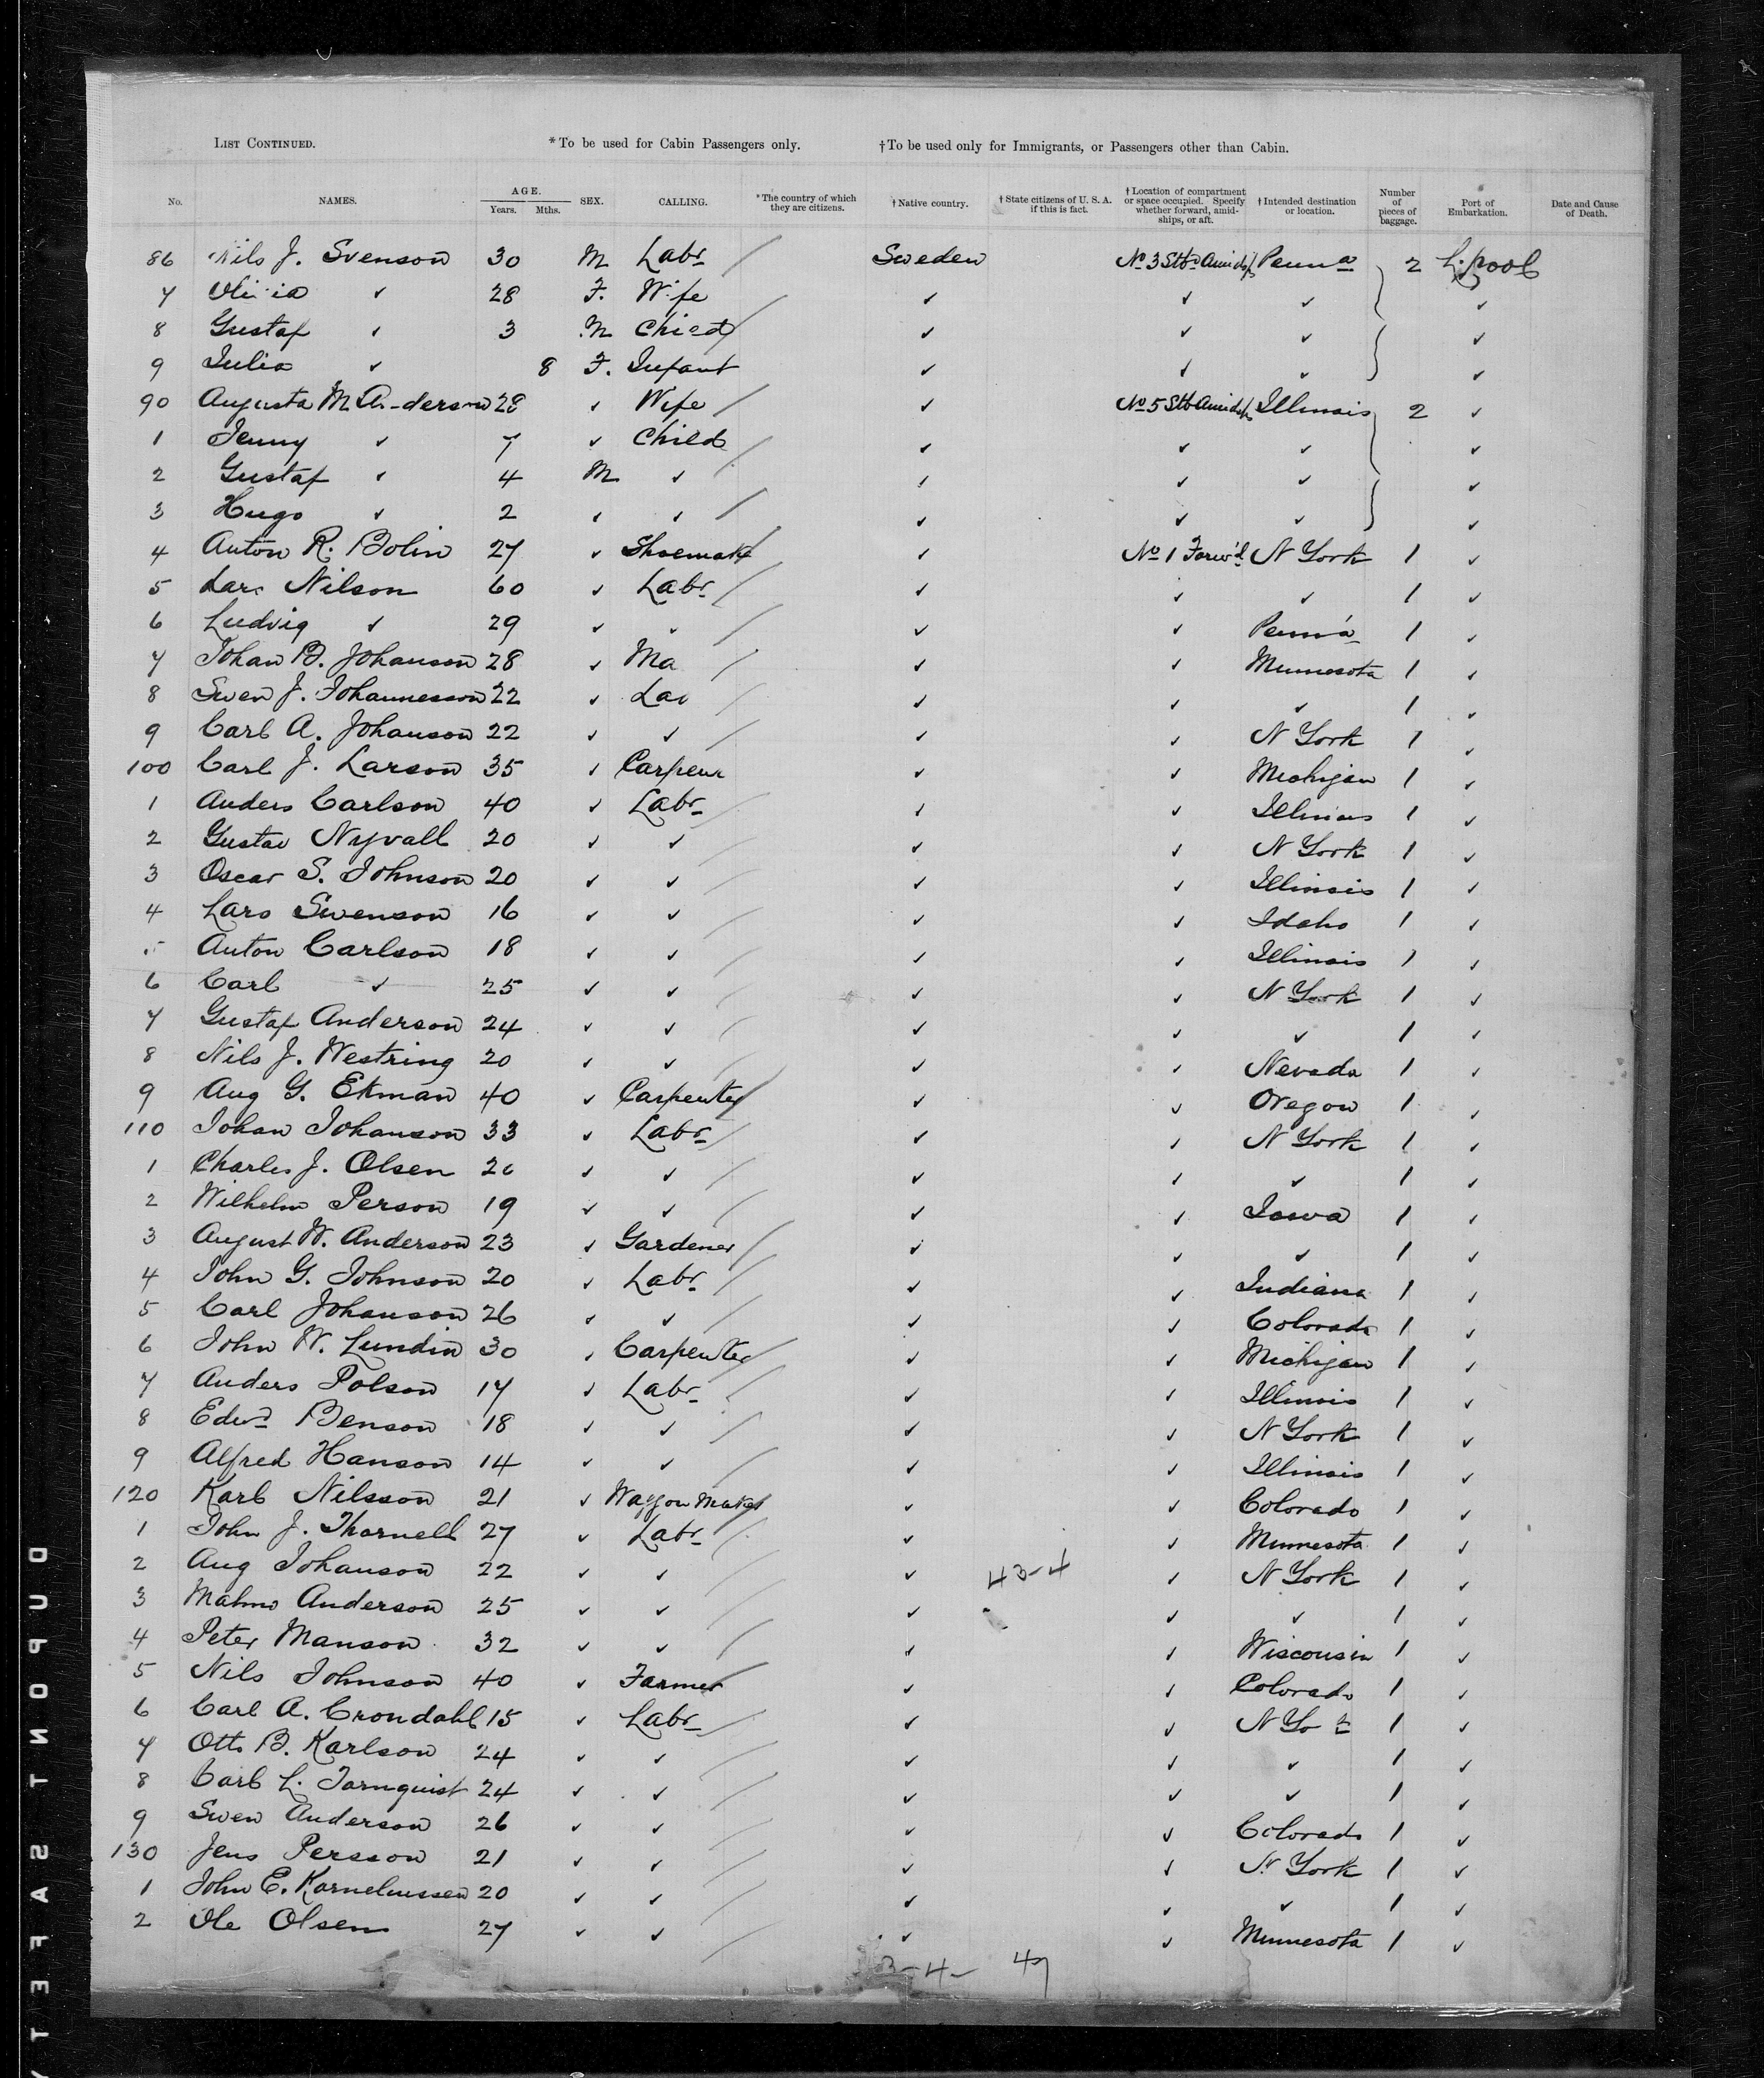 List Continued. *To be used for Cabin Passengers only. †To be used only for Immigrants, or Passengers other than Cabin.
No. NAMES. AGE. Years. Mths. SEX. CALLING. *The country of which they are citizens. †Native country. †State citizens of U. S. A. if this is fact. †Location of compartment or space occupied. Specify whether forward, amidships, or aft. †Intended destination or location. Number of pieces of baggage. Port of Embarkation. Date and Cause of Death.
86 Nils J. Svenson 30 M Labr Sweden No 3 Stbd Amidsps Penna 2 L.pool
7 ✓ 28 F. Wife ✓ ✓ ✓ ✓
8 Gustaf ✓ 3 M Child ✓ ✓ ✓ ✓
9 Julia ✓ 8 F. Infant ✓ ✓ ✓ ✓
90 Augusta M. Anderson 28 ✓ Wife ✓ No 5 Stb Amidsps Illinois 2 ✓
1 Jenny ✓ 7 ✓ Child ✓ ✓ ✓ ✓
2 Gustaf ✓ 4 M ✓ ✓ ✓ ✓ ✓
3 Hugo ✓ 2 ✓ ✓ ✓ ✓ ✓ ✓
4 Anton R. Bolin 27 ✓ Shoemakr ✓ No 1 Forwd N York 1 ✓
5 Lars Nilson 60 ✓ Labr ✓ ✓ ✓ 1 ✓
6 Ludvig ✓ 29 ✓ ✓ ✓ ✓ Penna 1 ✓
7 Johan B. Johanson 28 ✓ Ma ✓ ✓ Minnesota 1 ✓
8 Swen J. Johannesson 22 ✓ Lab ✓ ✓ ✓ 1 ✓
9 Carl A. Johanson 22 ✓ ✓ ✓ ✓ N York 1 ✓
100 Carl J. Larson 35 ✓ Carpenr ✓ ✓ Michigan 1 ✓
1 Anders Carlson 40 ✓ Labr ✓ ✓ Illinois 1 ✓
2 Gustav Nyvall 20 ✓ ✓ ✓ ✓ N York 1 ✓
3 Oscar S. Johnson 20 ✓ ✓ ✓ ✓ Illinois 1 ✓
4 Lars Swenson 16 ✓ ✓ ✓ ✓ Idaho 1 ✓
5 Anton Carlson 18 ✓ ✓ ✓ ✓ Illinois 1 ✓
6 Carl ✓ 25 ✓ ✓ ✓ ✓ N York 1 ✓
7 Gustaf Anderson 24 ✓ ✓ ✓ ✓ ✓ 1 ✓
8 Nils J. Westring 20 ✓ ✓ ✓ ✓ Nevada 1 ✓
9 Aug G. Ekman 40 ✓ Carpenter ✓ ✓ Oregon 1 ✓
110 Johan Johanson 33 ✓ Labr ✓ ✓ N York 1 ✓
1 Charles J. Olsen 26 ✓ ✓ ✓ ✓ ✓ 1 ✓
2 Wilhelm Person 19 ✓ ✓ ✓ ✓ Iowa 1 ✓
3 August W. Anderson 23 ✓ Gardener ✓ ✓ ✓ 1 ✓
4 John G. Johnson 20 ✓ Labr ✓ ✓ Indiana 1 ✓
5 Carl Johanson 26 ✓ ✓ ✓ ✓ Colorado 1 ✓
6 John W. Lundin 30 ✓ Carpenter ✓ ✓ Michigan 1 ✓
7 Anders Polson 17 ✓ Labr ✓ ✓ Illinois 1 ✓
8 Edwd Benson 18 ✓ ✓ ✓ ✓ N York 1 ✓
9 Alfred Hanson 14 ✓ ✓ ✓ ✓ Illinois 1 ✓
120 Karl Nilsson 21 ✓ Waggon Maker ✓ ✓ Colorado 1 ✓
1 John J. Thornell 27 ✓ Labr ✓ ✓ Minnesota 1 ✓
2 Aug Johanson 22 ✓ ✓ ✓ 43-4 ✓ N York 1 ✓
3 Malmo Anderson 25 ✓ ✓ ✓ ✓ ✓ 1 ✓
4 Peter Manson 32 ✓ ✓ ✓ ✓ Wisconsin 1 ✓
5 Nils Johnson 40 ✓ Farmer ✓ ✓ Colorado 1 ✓
6 Carl A. Crondahl 15 ✓ Labr ✓ ✓ N Yo k 1 ✓
7 Otto B. Karlson 24 ✓ ✓ ✓ ✓ ✓ 1 ✓
8 Carl L. Tornquist 24 ✓ ✓ ✓ ✓ ✓ 1 ✓
9 Swen Anderson 26 ✓ ✓ ✓ ✓ Colorado 1 ✓
130 Jens Persson 21 ✓ ✓ ✓ ✓ N York 1 ✓
1 John E. Korneliussen 20 ✓ ✓ ✓ ✓ ✓ 1 ✓
2 Ole Olsen 27 ✓ ✓ ✓ ✓ Minnesota 1 ✓
3-4- 47
DUPONT SAFETY